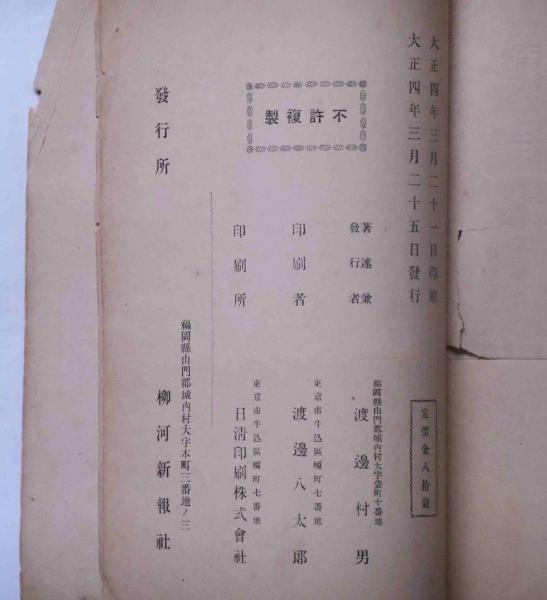 大正四年三月二十一日印刷
大正四年三月二十五日發行
定價金八拾錢
不許複製
著述兼
發行者
福岡縣山門郡城內村大字袋町十番地
渡邊村男
印刷者
東京市牛込區榎町七番地
渡邊八太郎
印刷所
東京市牛込區榎町七番地
日淸印刷株式會社
發行所
福岡縣山門郡城內村大字本町三番地ノ三
柳河新報社